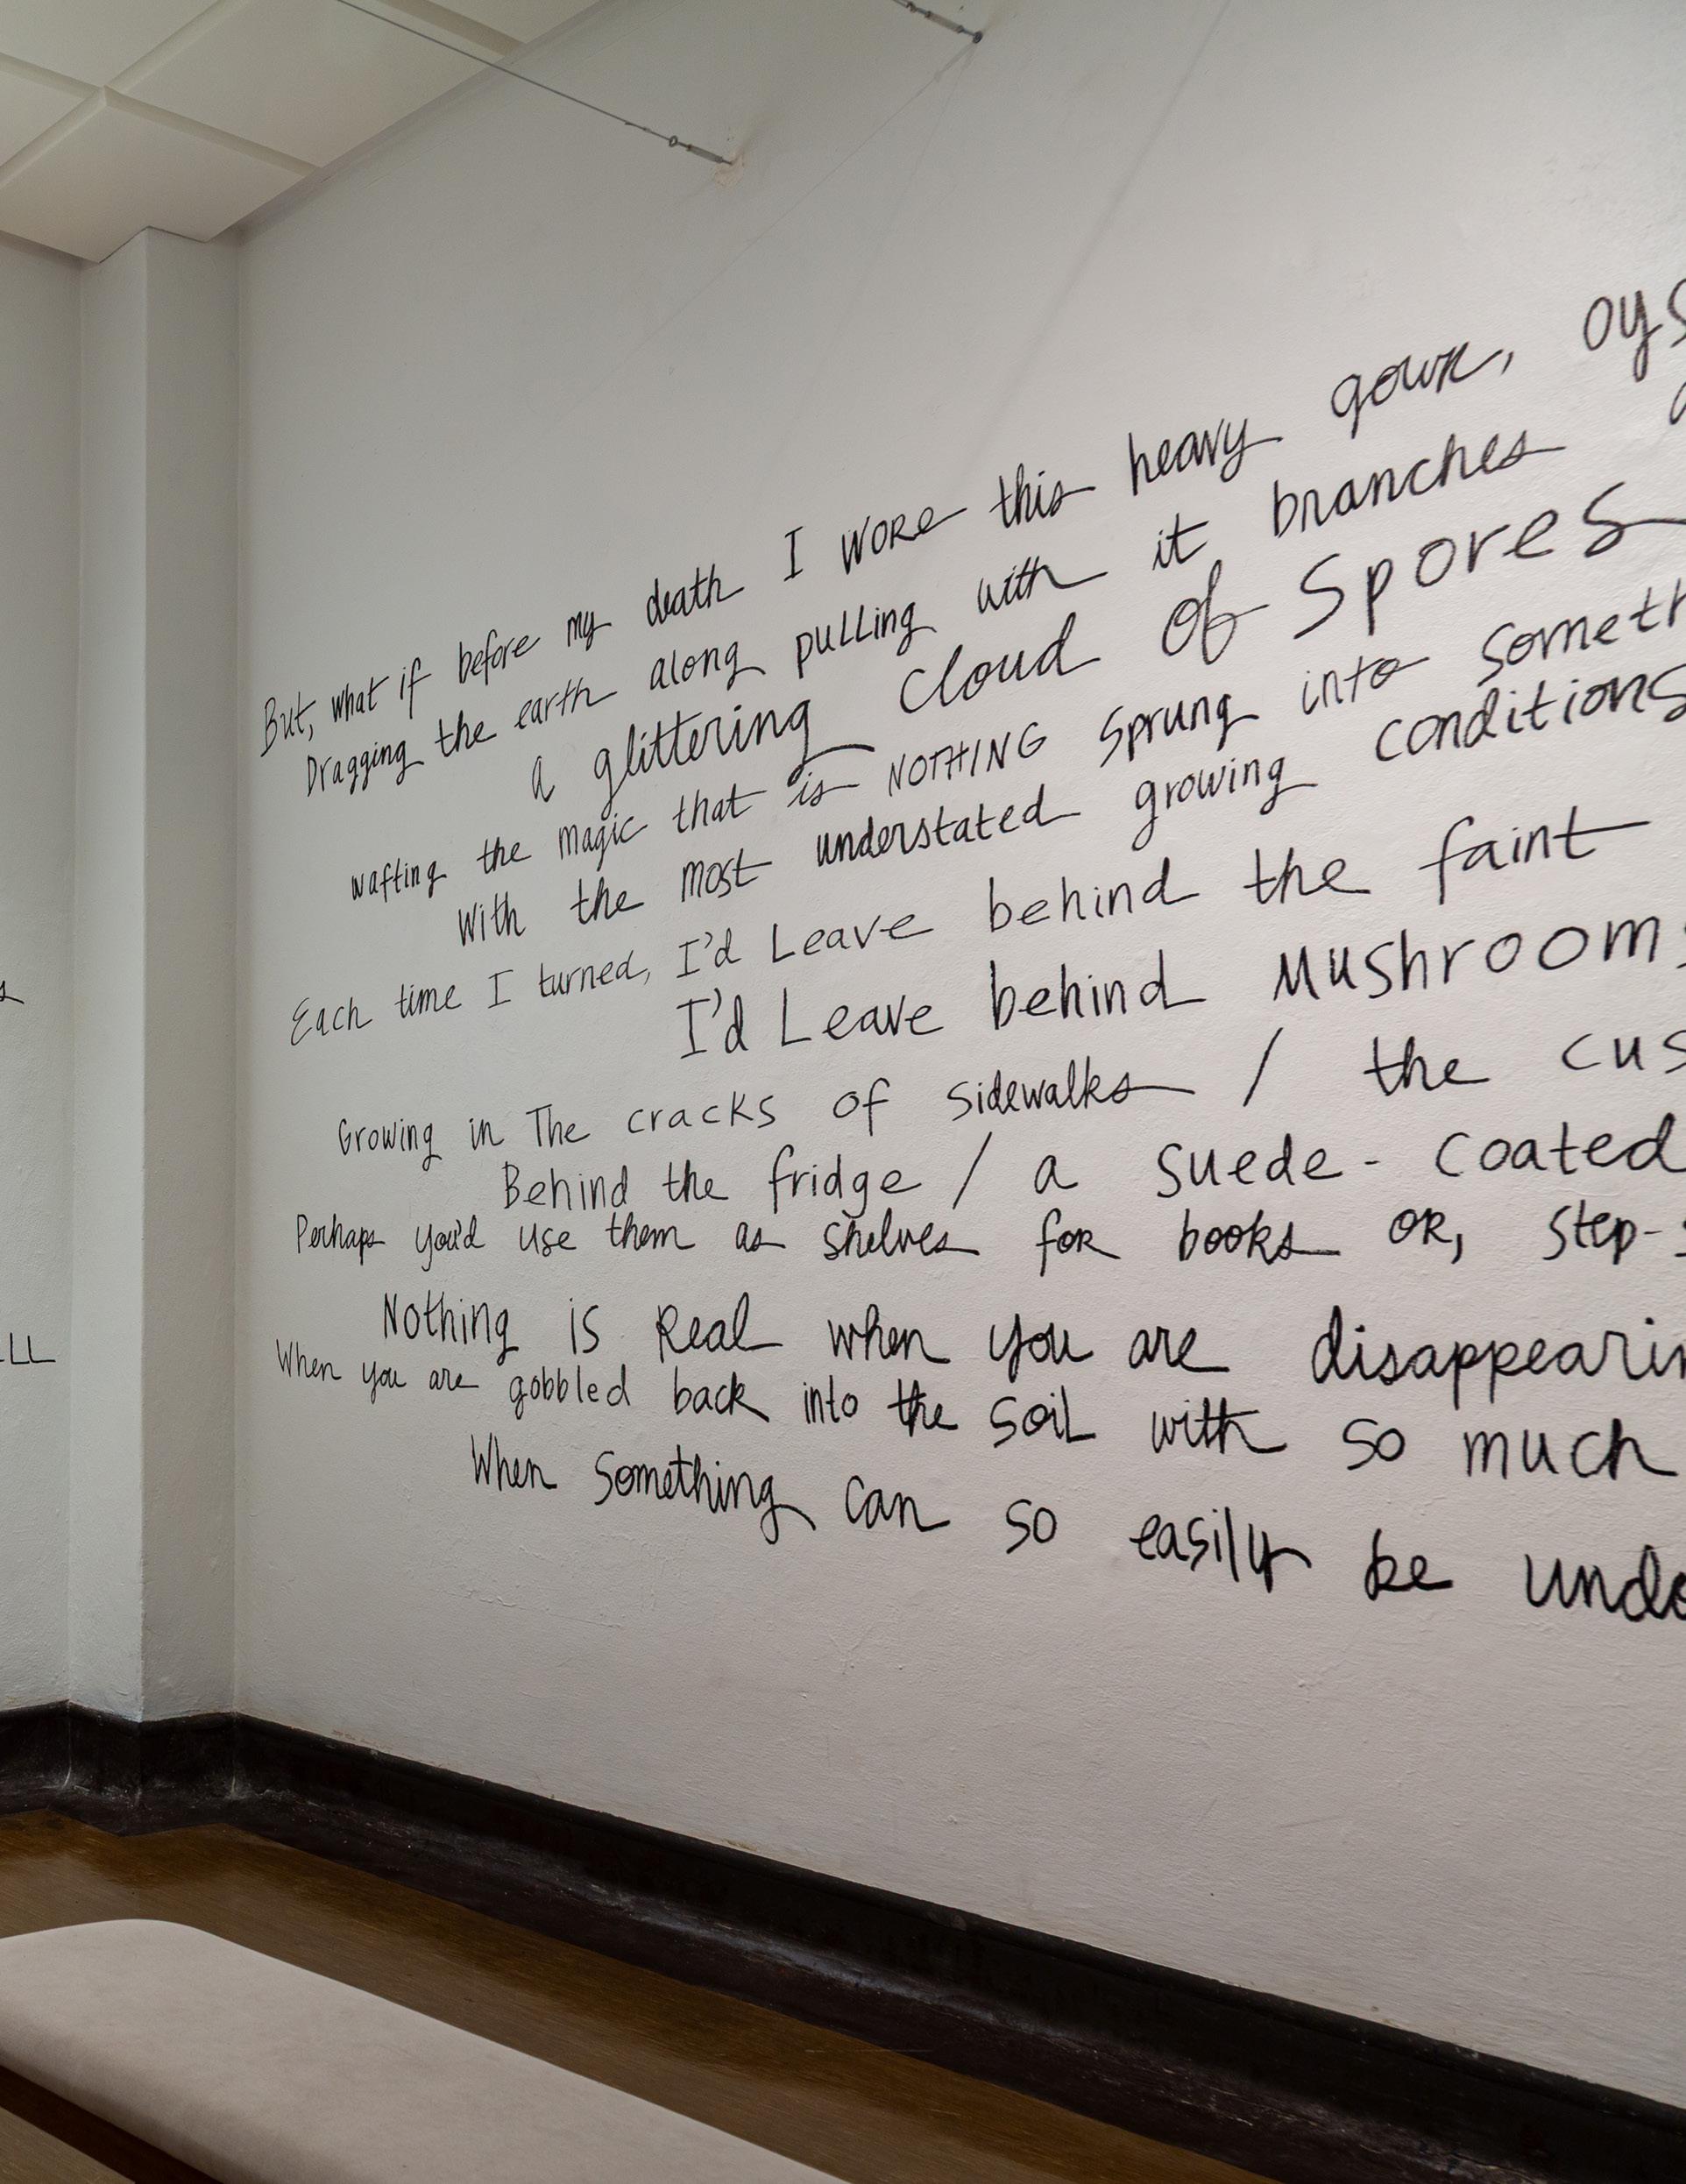 But, what if before my death I WORE this heavy gown, oys
Dragging the earth along pulling with it branches
a glittering cloud of Spores
wafting the magic that is NOTHING Sprung into someth
With the most understated growing conditions
Each time I turned, I'd Leave behind the faint
I'd Leave behind Mushrooms
Growing in The cracks of sidewalks / the cus
Behind the fridge / a suede-coated
Perhaps you'd use them as shelves for books OR, step-s
Nothing is Real when you are disappearin
When you are gobbled back into the soil with so much
When something can so easily be undo
LL